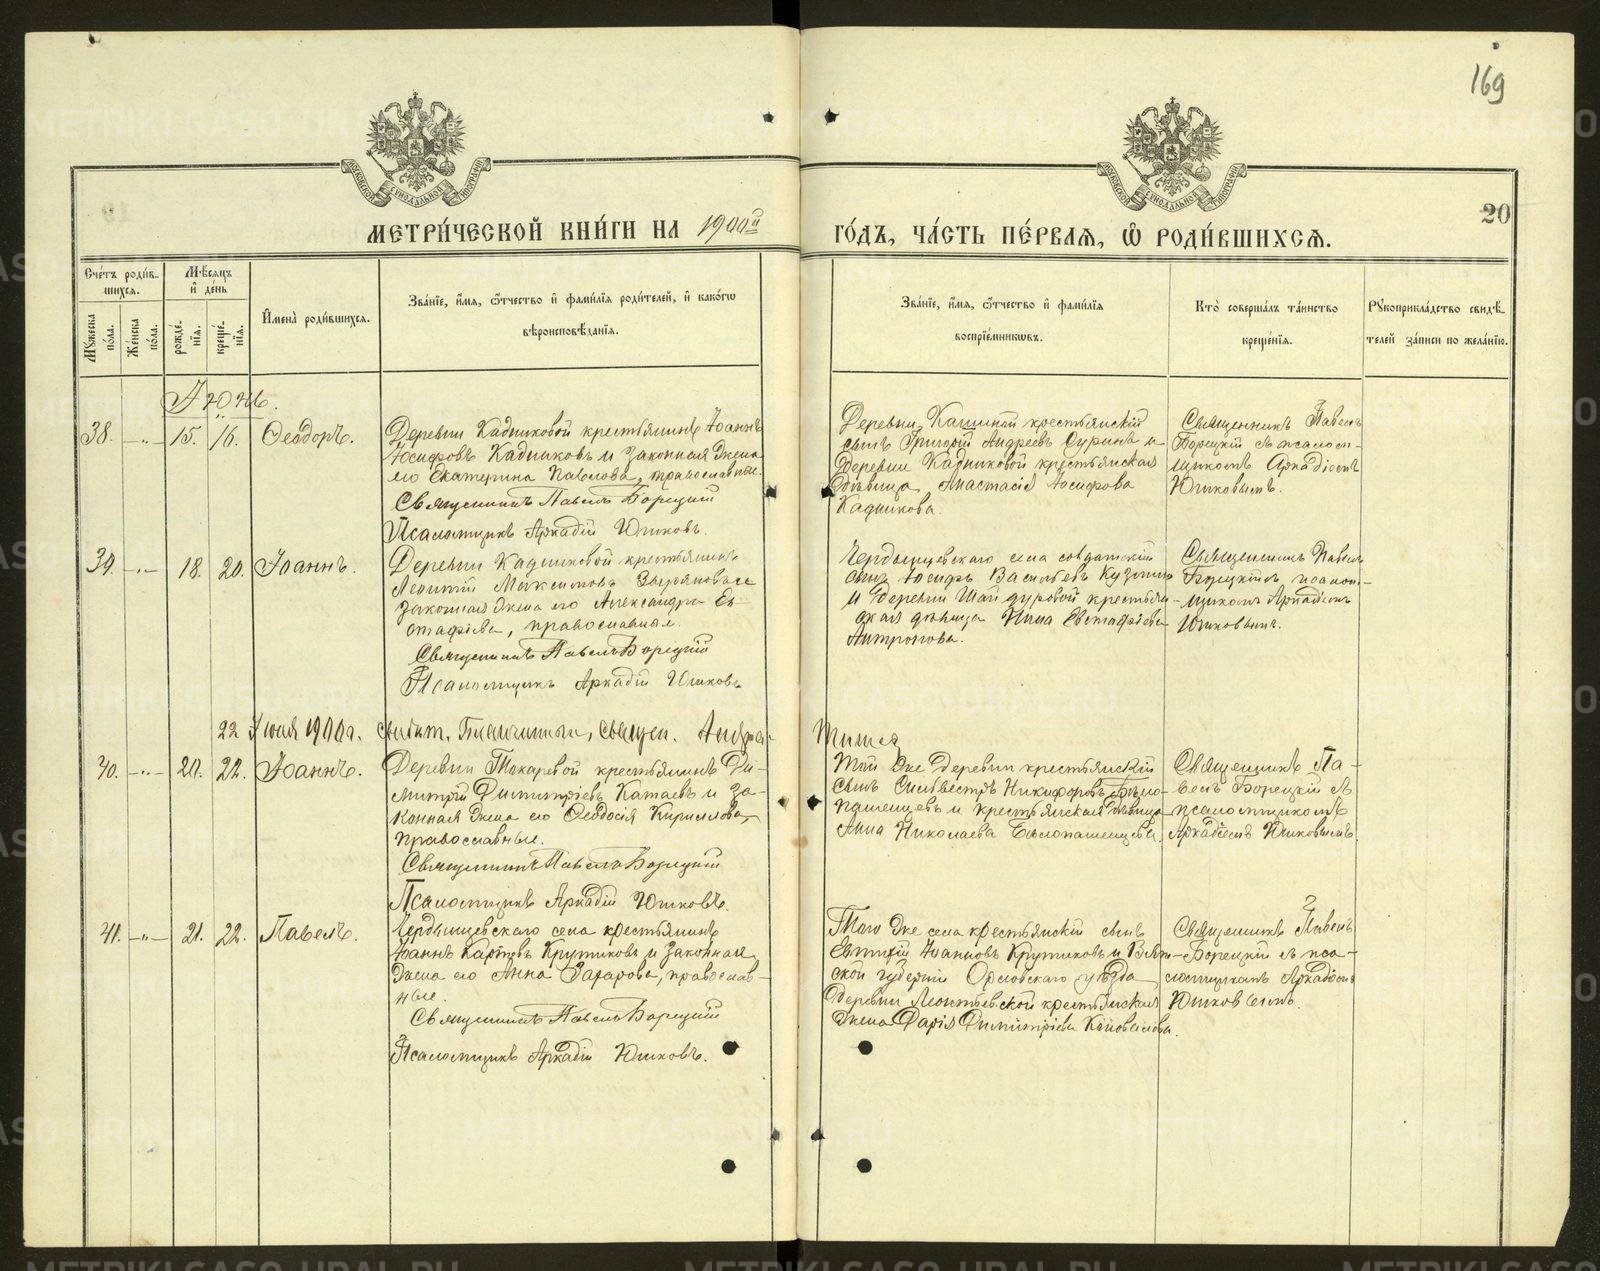 169
МОСКОВСКОЙ СѴНОДАЛЬНОЙ ТИПОГРАФІИ
МОСКОВСКОЙ СѴНОДАЛЬНОЙ ТИПОГРАФІИ
20
МЕТРИ́ЧЕСКОЙ КНИ́ГИ НА 1900й
ГО́ДЪ, ЧА́СТЬ ПЕ́РВАЯ, Ѡ҆ РОДИ́ВШИХСѦ.
Сче́тъ роди́в-
шихсѧ.
Мꙋ́жеска по́ла.
Же́нска по́ла.
Мѣ́сѧцъ
и҆ де́нь
рожде́-
нїѧ.
креще́-
нїѧ.
И҆мена̀ роди́вшихсѧ.
Зва́нїе, и҆́мѧ, ѻ҆́тчество и҆ фами́лїѧ роди́телей, и҆ како́гѡ
вѣроисповѣ́данїѧ.
Зва́нїе, и҆́мѧ, ѻ҆́тчество и҆ фами́лїѧ
воспрїе́мникѡвъ.
Кто̀ соверша́лъ та́инство
креще́нїѧ.
Рꙋкоприкла́дство свидѣ́-
телей за́писи по жела́нїю.
Іюнь.
38. -„- 15. 16. Ѳеодоръ.
Деревни Кадниковой крестьянинъ Іоаннъ
Іосифовъ Кадниковъ и законная жена
его Екатерина Павлова, православные.
Священникъ Павелъ Борецкій
Псаломщикъ Аркадій Юшковъ.
Деревни крестьянскій
сынъ Григорій Андреевъ Суринъ и
деревни Кадниковой крестьянская
дѣвица Анастасія Іосифова
Кадникова.
Священникъ Павелъ
Борецкій съ псалом-
щикомъ Аркадіемъ
Юшковымъ.
39. -„- 18. 20. Іоаннъ.
Деревни Кадниковой крестьянинъ
Леонтій Максимовъ Зыряновъ и
законная жена его Александра Ев-
стафіева, православные.
Священникъ Павелъ Борецкій
Псаломщикъ Аркадій Юшковъ
села солдатскій
сынъ Іосифъ Васильевъ Кузмин
и деревни Шайдуровой крестьян-
ская дѣвица Нина Евстафіева
Антропова.
Священникъ Павелъ
Борецкій съ псалом-
щикомъ Аркадіемъ
Юшковымъ.
22 Іюля 1900 г. свидѣт. Благочинный, священ. Андрей
40. -„- 20. 22. Іоаннъ.
Деревни Токаревой крестьянинъ Ди-
митрій Димитріевъ Катаевъ и за-
конная жена его Ѳеодосія Кириллова,
православные.
Священникъ Павелъ Борецкій
Псаломщикъ Аркадій Юшковъ.
Той же деревни крестьянскій
сынъ Сильвестръ Никифоровъ Бѣло-
пашенцевъ и крестьянская дѣвица
Анна Николаева Бѣлопашенцева.
Священникъ Па-
велъ Борецкій съ
псаломщикомъ
Аркадіемъ Юшковымъ
41. -„- 21. 22. Павелъ.
села крестьянинъ
Іоаннъ Карповъ Крутиковъ и законная
жена его Анна Захарова, православ-
ные.
Священникъ Павелъ Борецкій
Псаломщикъ Аркадій Юшковъ.
Того же села крестьянскій сынъ
Евтихій Іоанновъ Крутиковъ и Вят-
ской губерніи Орловскаго уѣзда
деревни Леонтьевской крестьянская
жена Дарія Димитріева Коновалова.
Священникъ Павелъ
Борецкій съ пса-
ломщикомъ Аркадіемъ
Юшковымъ.
METRIKI.GASO-URAL.RU